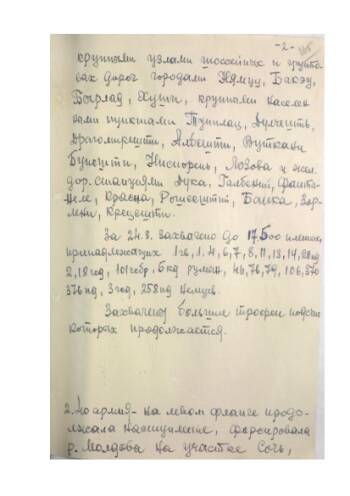 -2-
крупными узлами шоссейных и грунто-
вах дорог городами Нямцу, Бакэу,
Бырлад, Хуши, крупными населен
ными пунктами Тупилац, Дулчешть,
Драгомирешти, Албешти, Вуткани
Бунешти, Ниспорень, Лозова и жел.
дор. станциями Дука, Галбений, Фынта-
неле, Красна, Рошиешти, Банка, Зор-
лени, Крецешти.
За 24.8. захвачено до 17500 пленных,
принадлежащих 1 гв, 1, 4, 6, 7, 8, 11, 13, 14, 20 пд
2, 18 гпд, 101 гсбр, 5 кд румын, 46, 76, 79, 106, 370
376 пд, 3 гсд, 258 пд немцев.
Захвачены большие трофеи подсчет
которых продолжается.
2. 40 армия - на левом фланге продол-
жала наступление, форсировала
р. Молдова на участке Сочь,